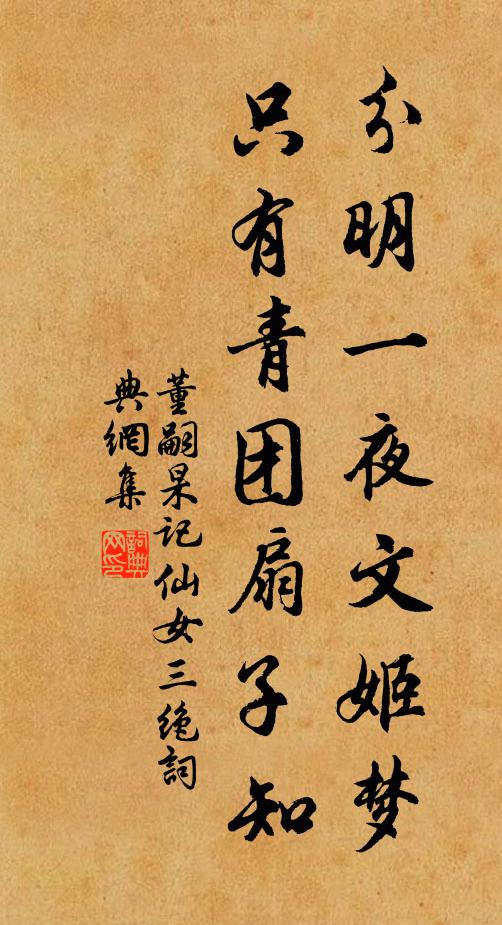 分明一夜文姬梦
只有青团扇子知
董嗣杲记仙女三绝詞
典網集
詞典网印